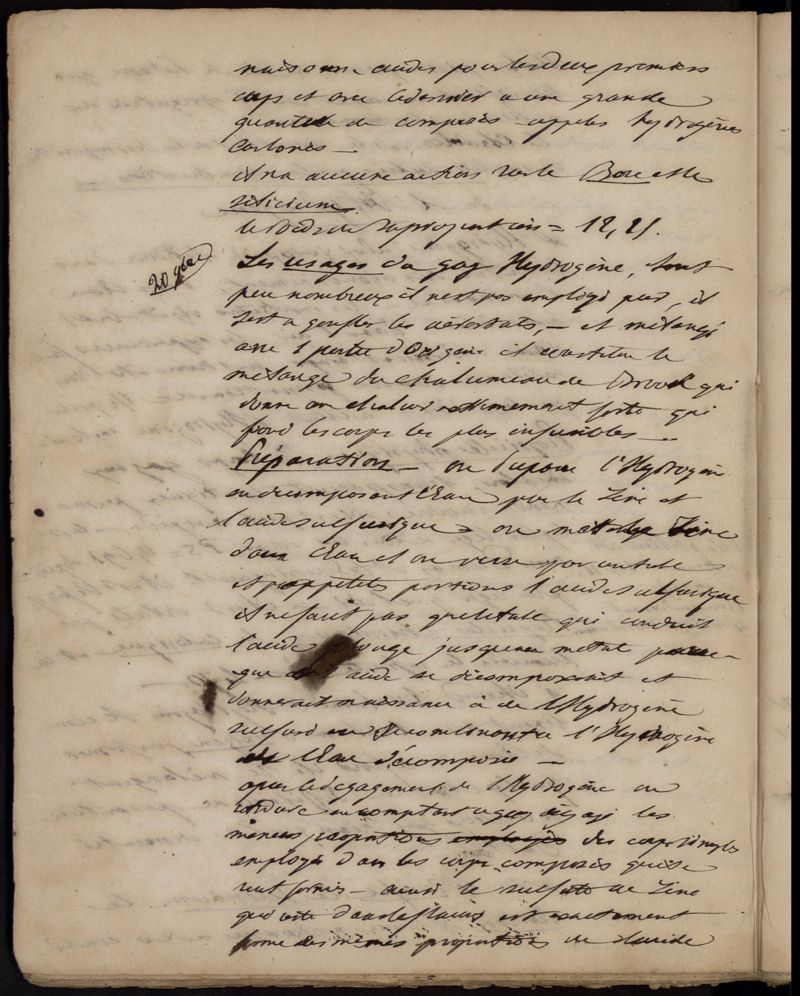 naissance acides pour les deux premiers
corps et avec le dernier a une grande
quantité de composés appelés hydrogènes
carbonés —
il n'a aucune action sur le Bore et le
silicium.
le poids de sa proportion = 12,51.
20 9bre
Les usages du gaz Hydrogène, sont
peu nombreux il n'est pas employé pur, il
sert a gonfler les aérostats, — et mélangé
avec 1 partie d'Oxigène il constitue le
mélange du chalumeau de Brook qui
donne une chaleur extrêmement forte qui
fond les corps les plus infusibles —
Préparation — on prépare l'Hydrogène
en décomposant l'Eau par le Zinc et
l'acide sulfurique on met le Zinc
dans l'Eau et on verse par un tube
et par petites portions l'acide sulfurique
il ne faut pas que le tube qui conduit
l'acide plonge jusqu'au métal parce
que l'acide se décomposerait et
donnerait naissance à de l'Hydrogène
sulfuré en se combinant a l'Hydrogène
de l'Eau décomposée —
après le dégagement de l'Hydrogène on
retrouve en comptant le gaz dégagé les
mêmes proportions employés des corps simples
employés dans les corps composés qui se
sont formés — ainsi le sulfate de Zinc
qui reste dans le flacon est exactement
formé des mêmes proportions de l'acide